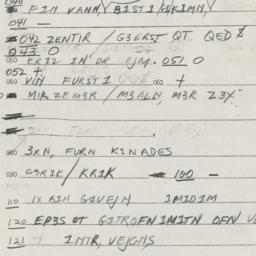 040 FIN VANN, BIST I/
041 —
042 ZENTIR / G3ERST QT QED $
043 O
050 ERIZ IN OR EJM. 051 O
052 +
060 VIN FURST1 062 +
MIR ZEM3R / M3ALN, M3R Z3X
080 3XN, FURN KINADES
090 C3RIK / KRIK 100 —
110 IX BIN GIVEJN IMIDIM
120 EP3S OT GITROFNIMITN OFN
121 INTR, VEJGNS